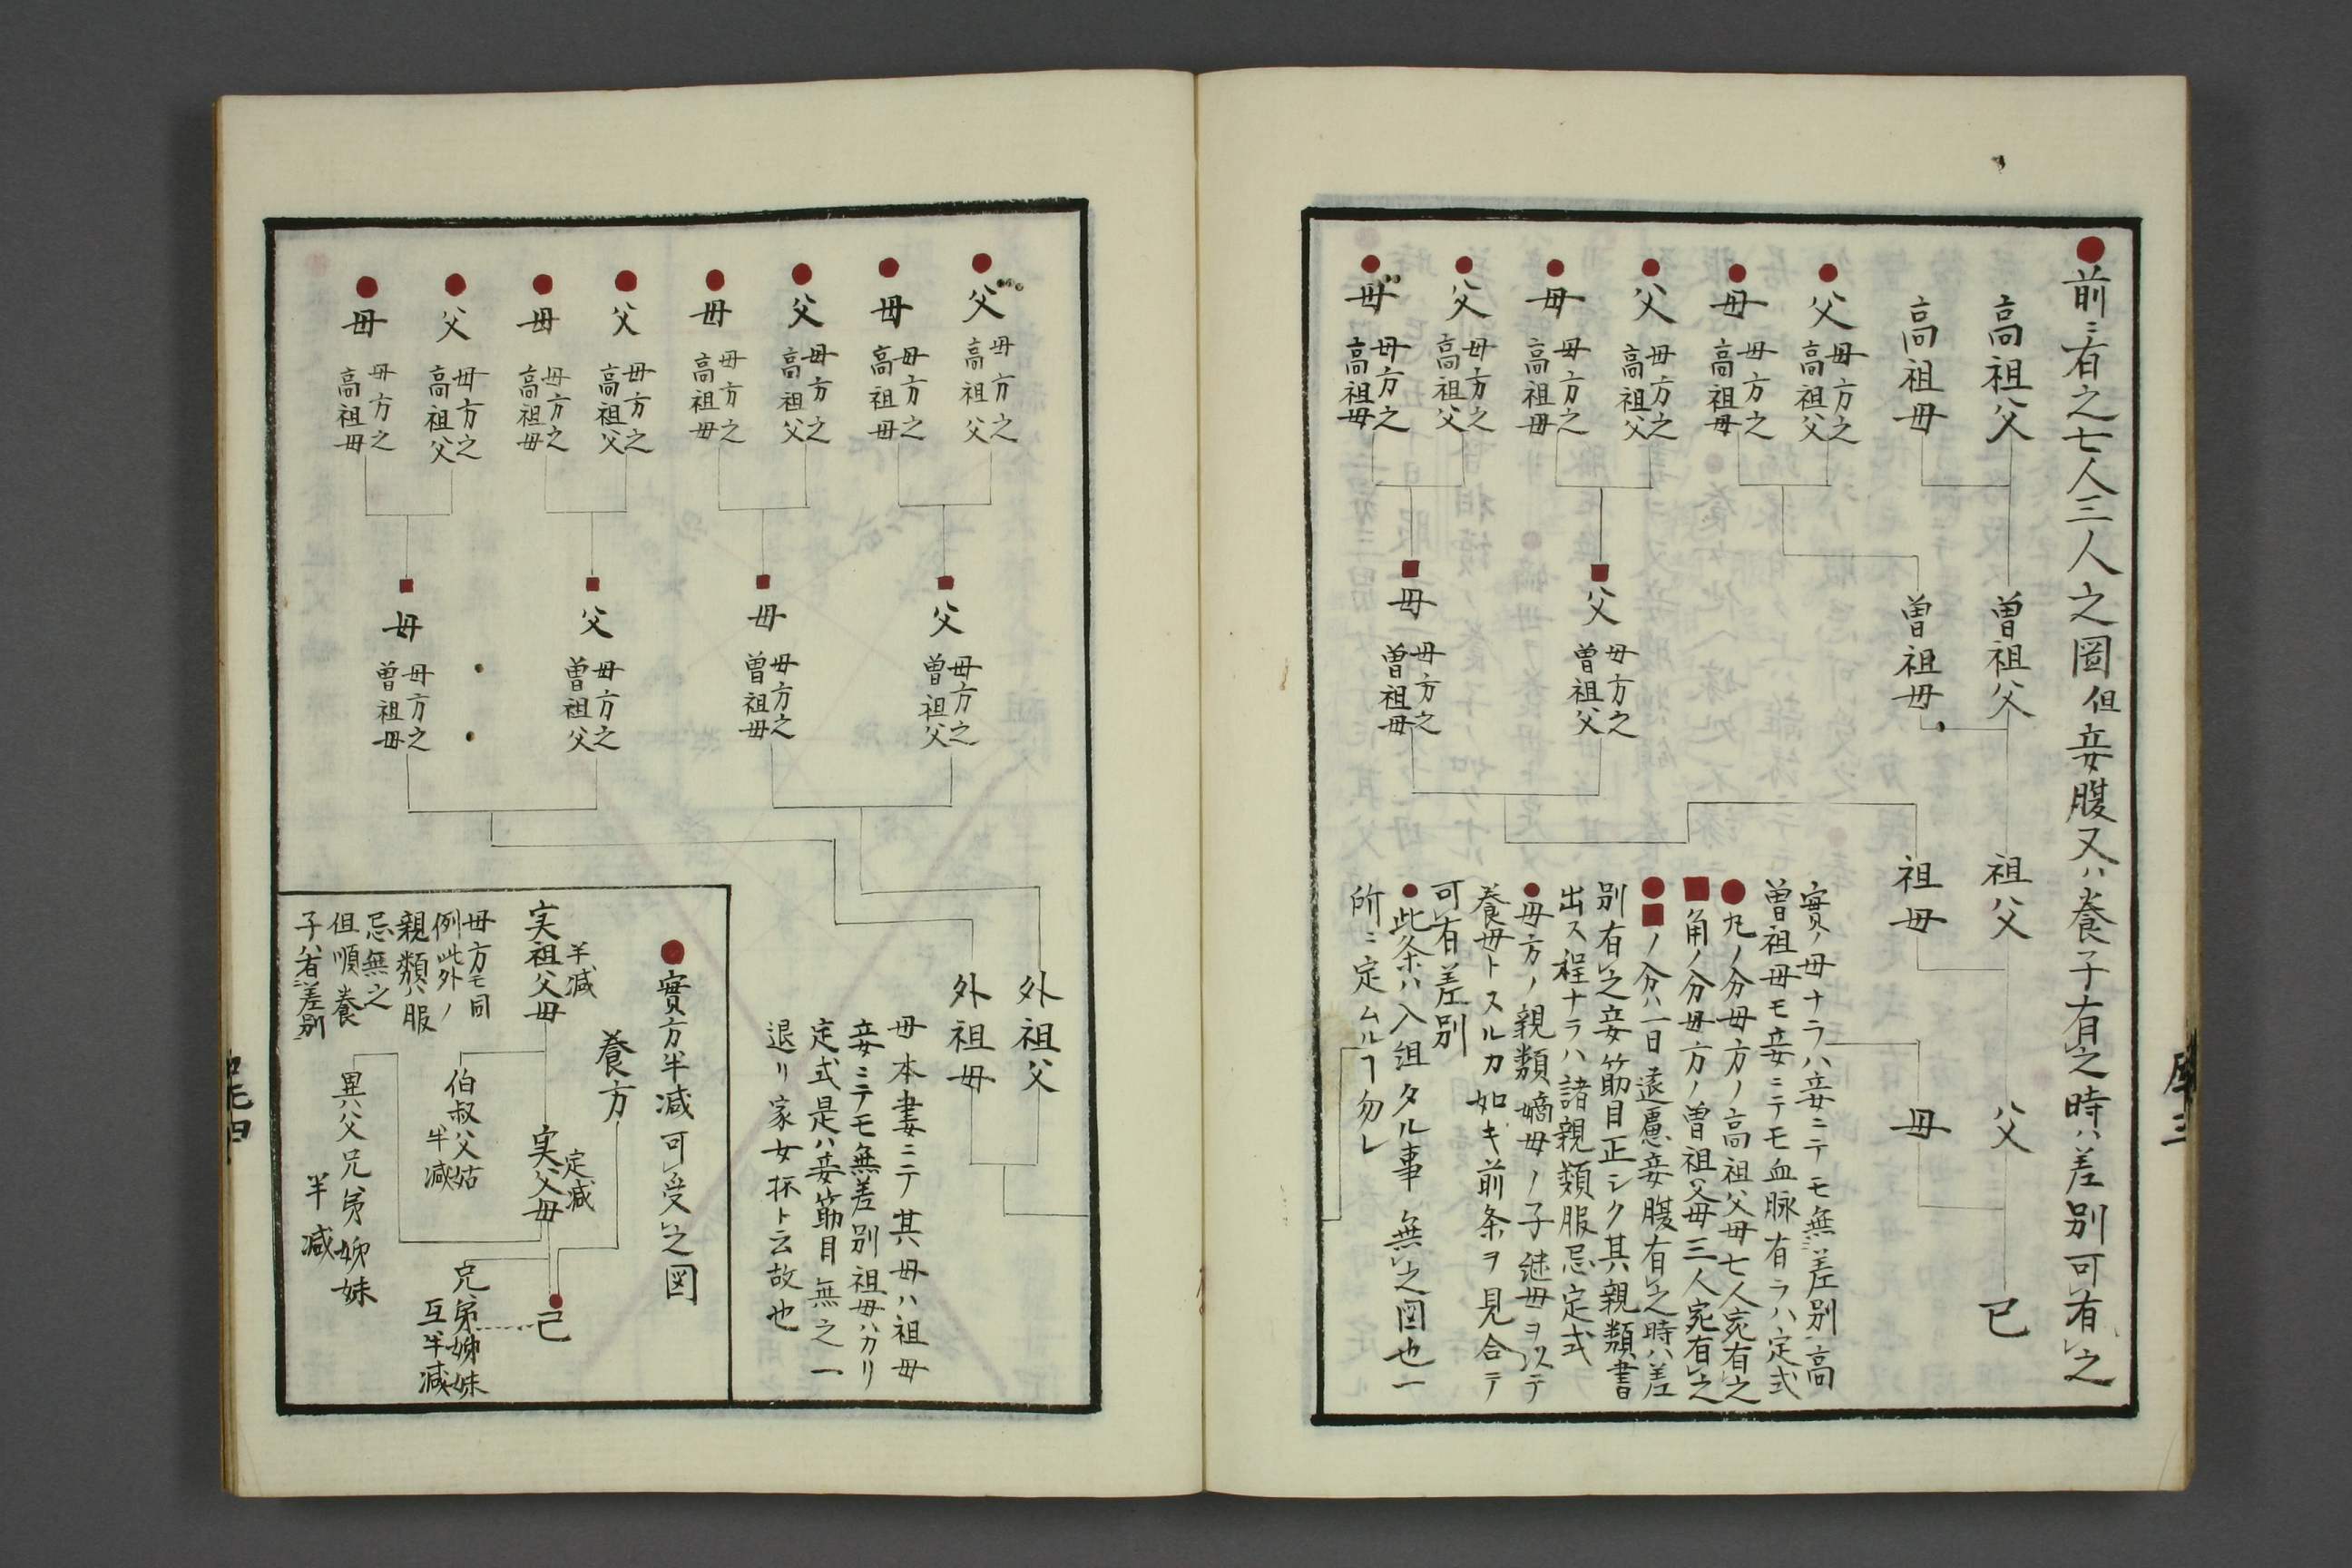 ●前ニ有之七人三人之圖 但妾腹又ハ養子有之時ハ差別可有之
高祖父
高祖母
●父 母方之高祖父
●母 母方之高祖母
●父 母方之高祖父
●母 母方之高祖母
●父 母方之高祖父
●母 母方之高祖母
曽祖父
曽祖母
■父 母方之曽祖父
■母 母方之曽祖母
祖父
祖母
父
母
己
實ノ母ナラハ妾ニテモ無差別高
曽祖母モ妾ニテモ血脉有ラハ定式
●丸ノ分母方ノ高祖父母七人宛有之
■角ノ分母方ノ曽祖父母三人宛有之
●■ノ分ハ一日遠慮妾腹有之時ハ差
別有之妾筋目正シク其親類書
出ス程ナラハ諸親類服忌定式
●母方ノ親類嫡母ノ子継母ヲ以テ
養母トスルカ如キ前条ヲ見合テ
可有差別
●此条ハ入組タル事無之図也一
所ニ定ムルヿ勿レ
●父 母方之高祖父
●母 母方之高祖母
●父 母方之高祖父
●母 母方之高祖母
●父 母方之高祖父
●母 母方之高祖母
●父 母方之高祖父
●母 母方之高祖母
■父 母方之曽祖父
■母 母方之曽祖母
■父 母方之曽祖父
■母 母方之曽祖母
外祖父
外祖母
母本妻ニテ其母ハ祖母
妾ニテモ無差別祖母ハカリ
定式是ハ妾筋目無之一
退リ家女抔ト云故也
●實方半減可受之図
養方
半減
実祖父母
定減
実父母
己
伯叔父姑
半減
兄弟姉妹
互半減
異父兄弟姉妹
半減
母方モ同
例此外ノ
親類ハ服
忌無之
但順養
子ハ有差別